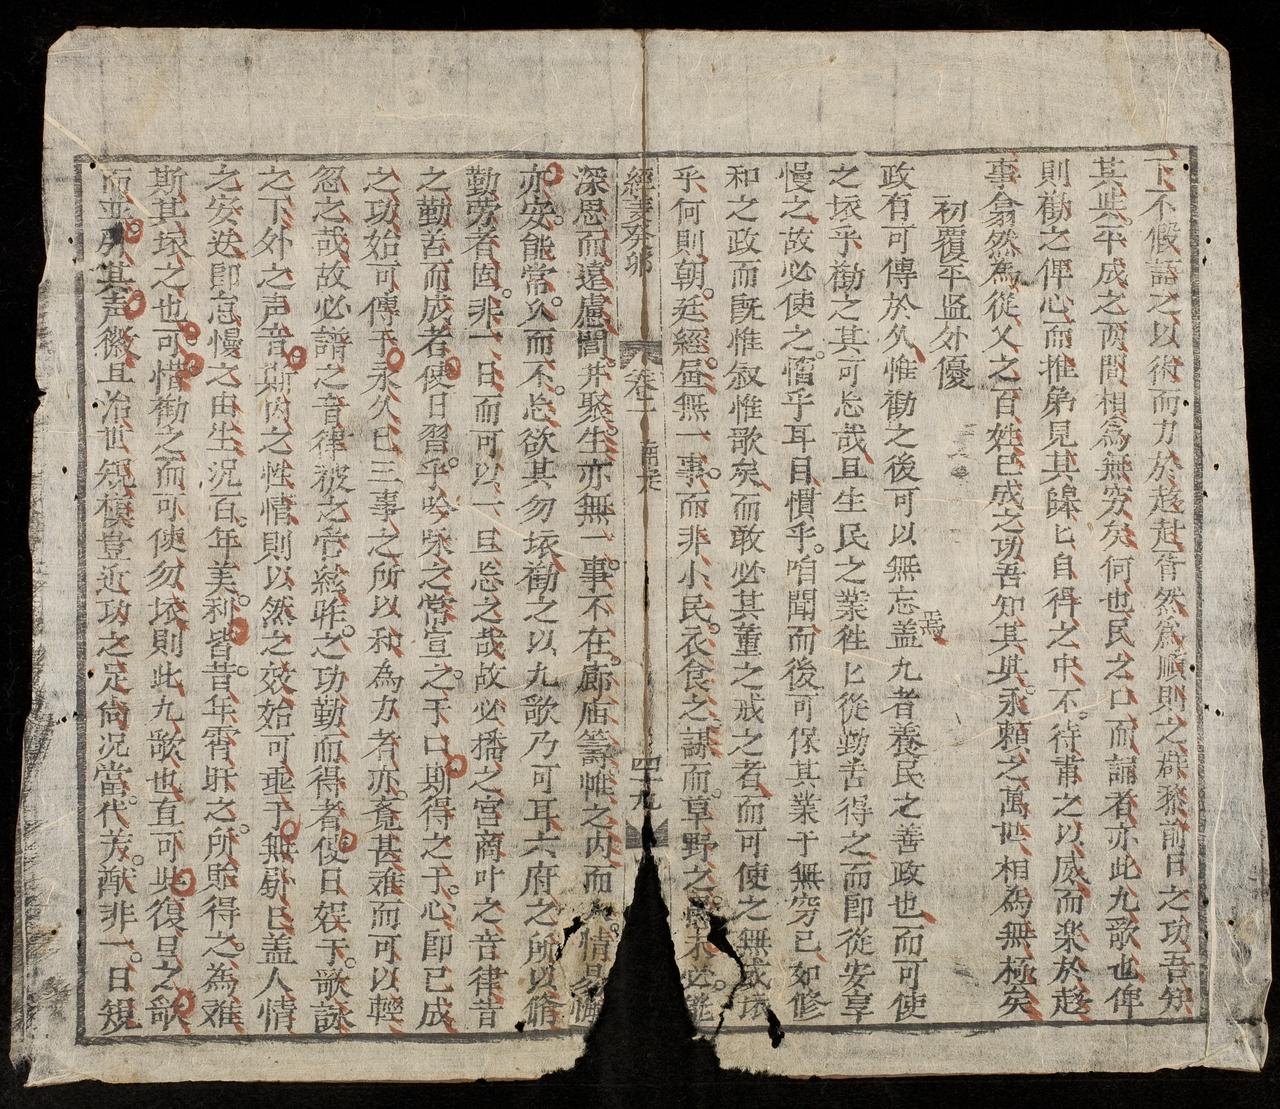 下不假語之以術而力於趍赴胥然爲順則之群黎前日之功吾知
其此平成之两間相爲無穷矣何也民之口而誦者亦此九歌也俾
則勸之俾心而推弟見其歸匕自得之中不待甫之以威而楽於趍
事翕然為從乂之百姓已成之功吾知其與永頼之萬世相為無極矣
初覆平监外優
政有可傳於久惟勸之後可以無忘盖九者養民之善政也而可使
焉
之㧒乎勸之其可忘㢤且生民之業徃匕從勤苦得之而即從安享
慢之故必使之慴乎耳目慣乎咱聞而後可保其業于無穷已如修
和之政而既惟叙惟歌矣而敢必其董之戒之者而可使之無或㧒
乎何則朝廷經昼無一事而非小民衣食之謀而草野之未必能
經義癸卯 卷二 四十九
深思而遠慮閭井聚生亦無一事不在廊庙籌帷之内而情易懈
亦安能常久而不忘欲其勿㧒勸之以九歌乃可耳六府之所以脩
勤劳者固非一日而可以一旦忘之㢤故必播之宫商叶之音律昔
之勤苦而成者使日習乎吟咏之常宣之于口斯得之于心即已成
之功始可傳于永久已三事之所以和為力者亦覔甚难而可以輕
忽之㢤故必譜之音律被之管絃昨之功勤而得者使日娱于歌詠
之下外之声音斯内之性情則以然之效始可垂于無斁已盖人情
之安迭即怠慢之由生况百年美利皆昔年宵旰之所貽得之為难
斯其㧒之也可惜勸之而可使勿㧒則此九歌也直可與復旦之歌
而並其声徽且治世規模豈近功之定尚况當代芳猷非一日規